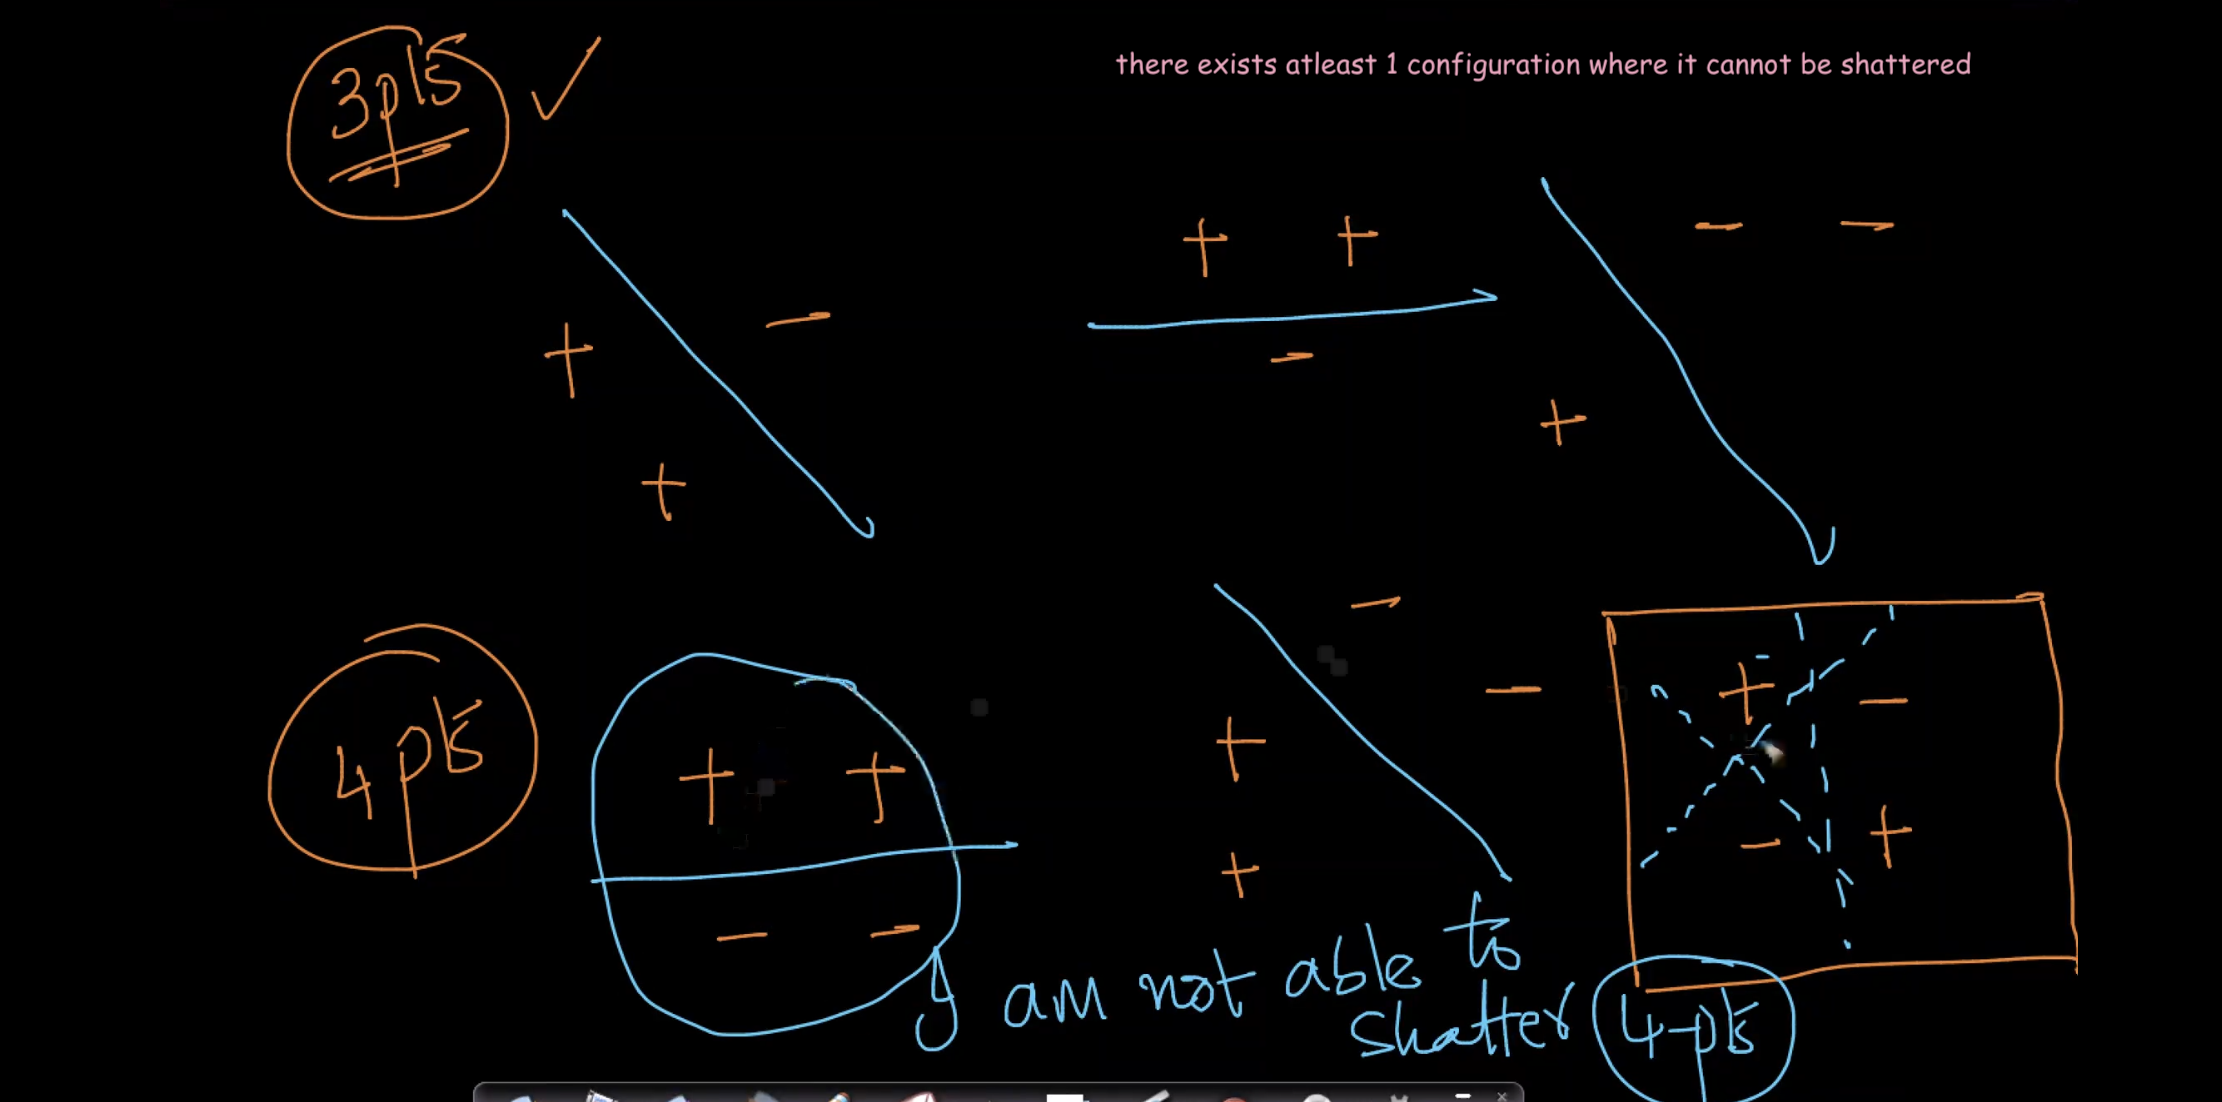 3pts
there exists atleast 1 configuration where it cannot be shattered
+
-
+
+ +
-
- -
+
4 pts
+ +
- -
-
-
+
+
+ -
- +
I am not able to
shatter 4-pts